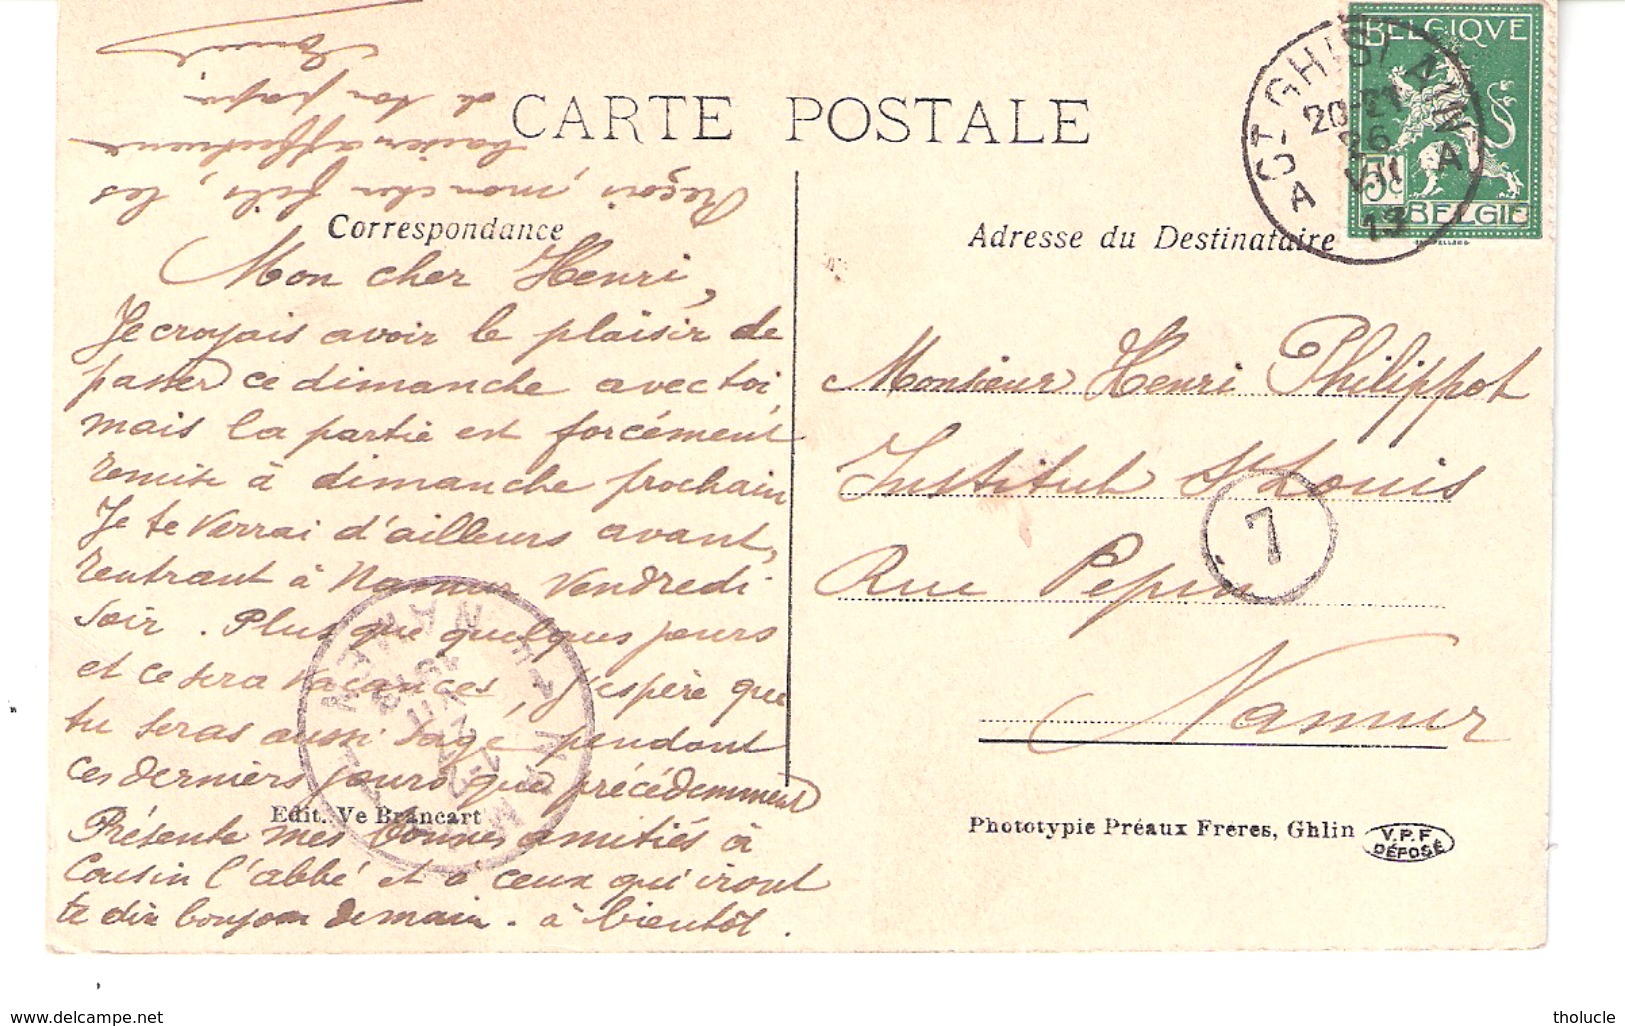 CARTE POSTALE
Correspondance
Mon cher Henri,
Je croyais avoir le plaisir de
passer ce dimanche avec toi
mais la partie est forcément
remise à dimanche prochain
Je te verrai d'ailleurs avant,
rentrant à Namur vendredi
soir. Plus que quelques jours
et ce sera vacances, j'espère que
tu seras aussi sage pendant
ces derniers jours que précédemment
Présente mes bonnes amitiés à
Cousin l'abbé et à ceux qui iront
te dire bonjour demain. à bientôt.
Reçois, mon cher fils, les
baisers affectueux
de ton papa
Edit. Ve Brancart
Adresse du Destinataire
Monsieur Henri Philippot
Institut St Louis
Rue Pepin
Namur
7
BELGIQUE
5c
BELGIË
ST-GHISLAIN
A A
20-21
26
VII
13
NAMUR
Phototypie Préaux Frères, Ghlin
V.P.F
DÉPOSÉ
www.delcampe.net
tholucle